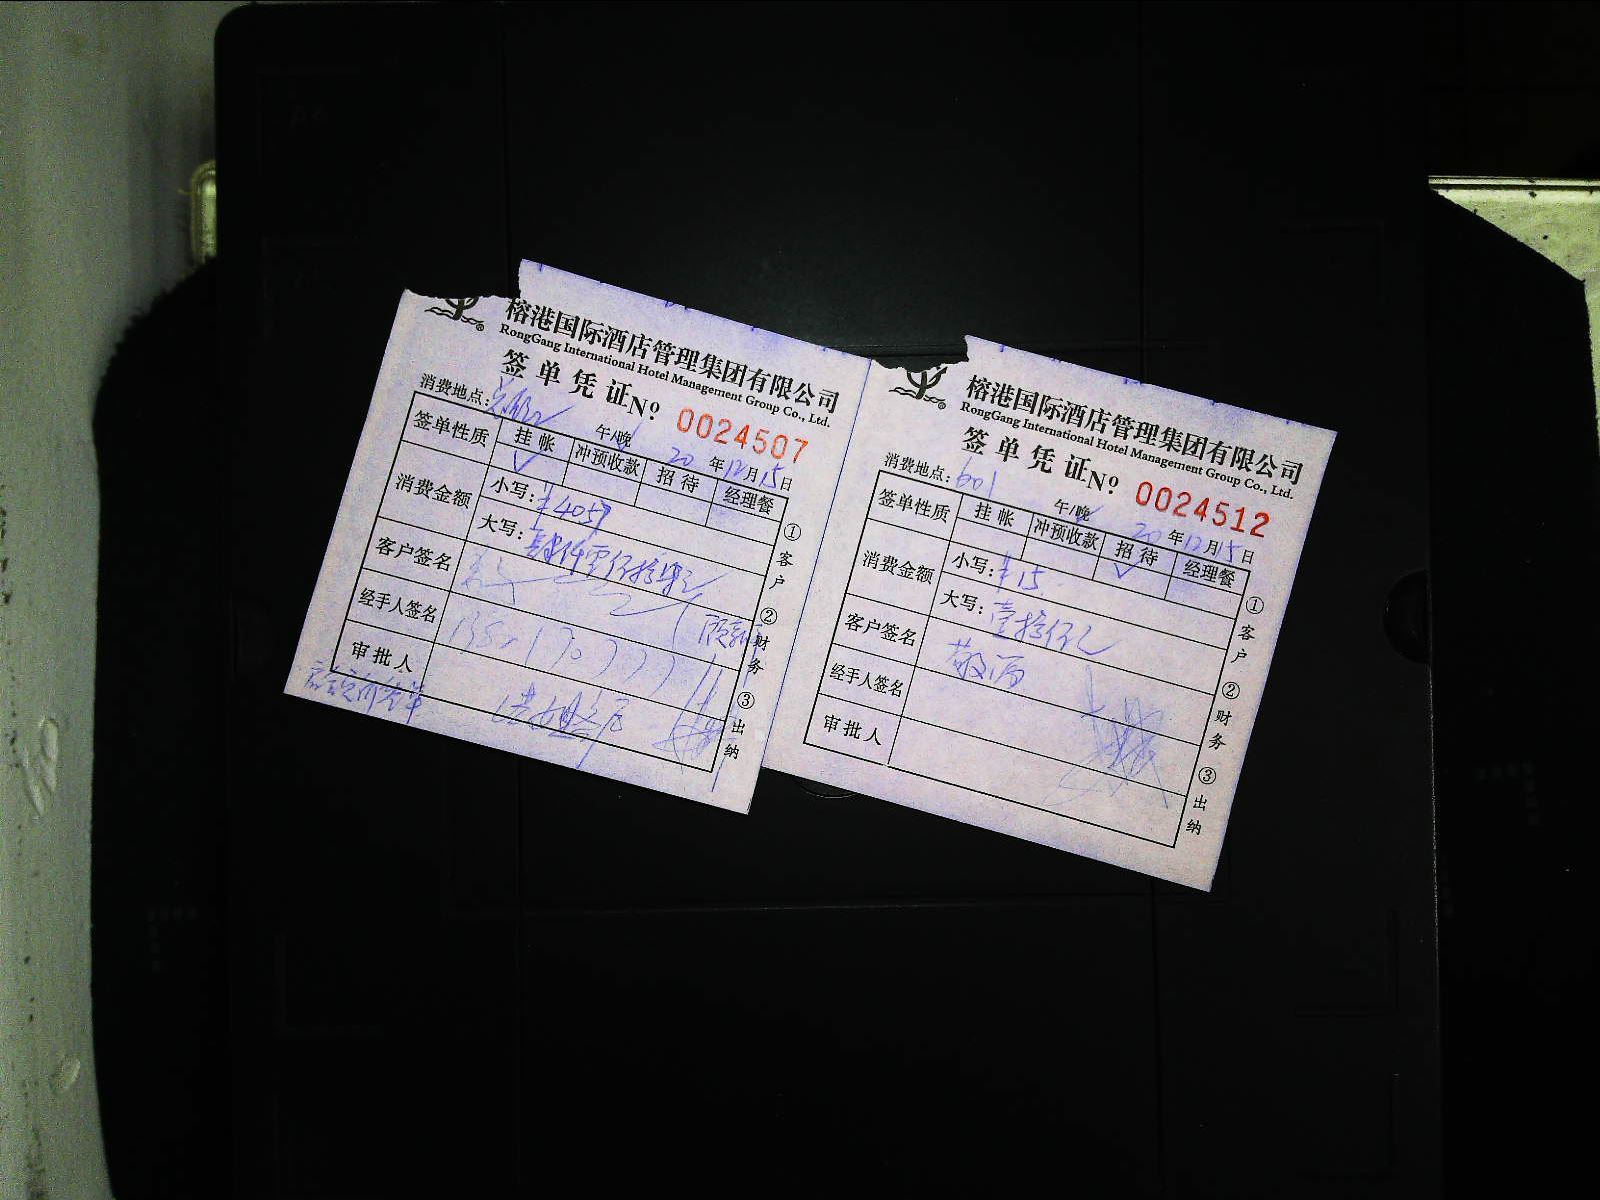 榕港国际酒店管理集团有限公司
RongGang International Hotel Management Group Co., Ltd.
签单凭证 № 0024507
消费地点:
午/晚 20 年 12 月 15 日
签单性质 挂帐 冲预收款 招待 经理餐
✓
消费金额 小写: ¥4057
大写: 肆仟零伍拾柒元
客户签名
经手人签名
审批人
① 客户 ② 财务 ③ 出纳
榕港国际酒店管理集团有限公司
RongGang International Hotel Management Group Co., Ltd.
签单凭证 № 0024512
消费地点: 601
午/晚 20 年 12 月 15 日
签单性质 挂帐 冲预收款 招待 经理餐
✓
消费金额 小写: ¥15
大写: 壹拾伍元
客户签名
经手人签名
审批人
① 客户 ② 财务 ③ 出纳